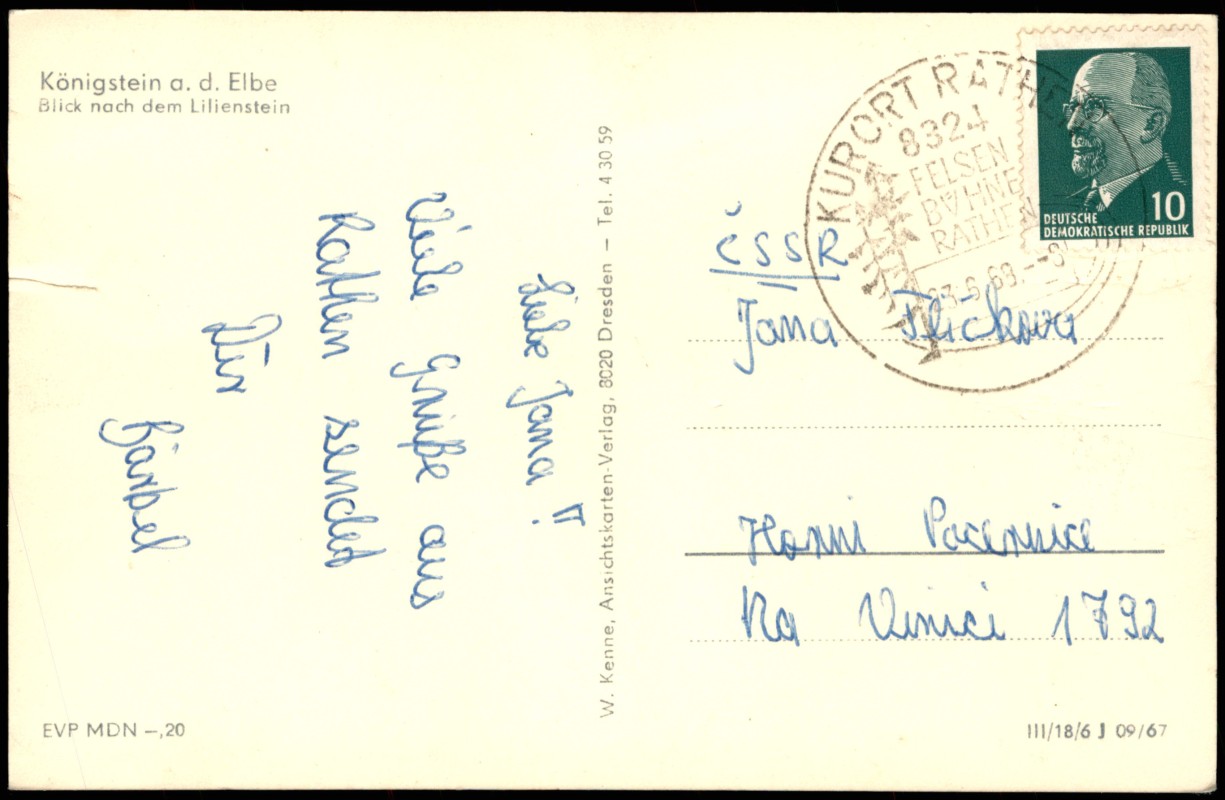 Königstein a. d. Elbe
Blick nach dem Lilienstein
Liebe Jana!
Viele Grüße aus
Rathen sendet
Dir
Bärbel
W. Kenne, Ansichtskarten-Verlag, 8020 Dresden – Tel. 4 30 59
KURORT RATHEN
8324
FELSEN
BÜHNE
RATHEN
10
DEUTSCHE
DEMOKRATISCHE REPUBLIK
ČSSR
Jana
Horni Pocernice
Na Vinici 1792
EVP MDN –,20
III/18/6 J 09/67